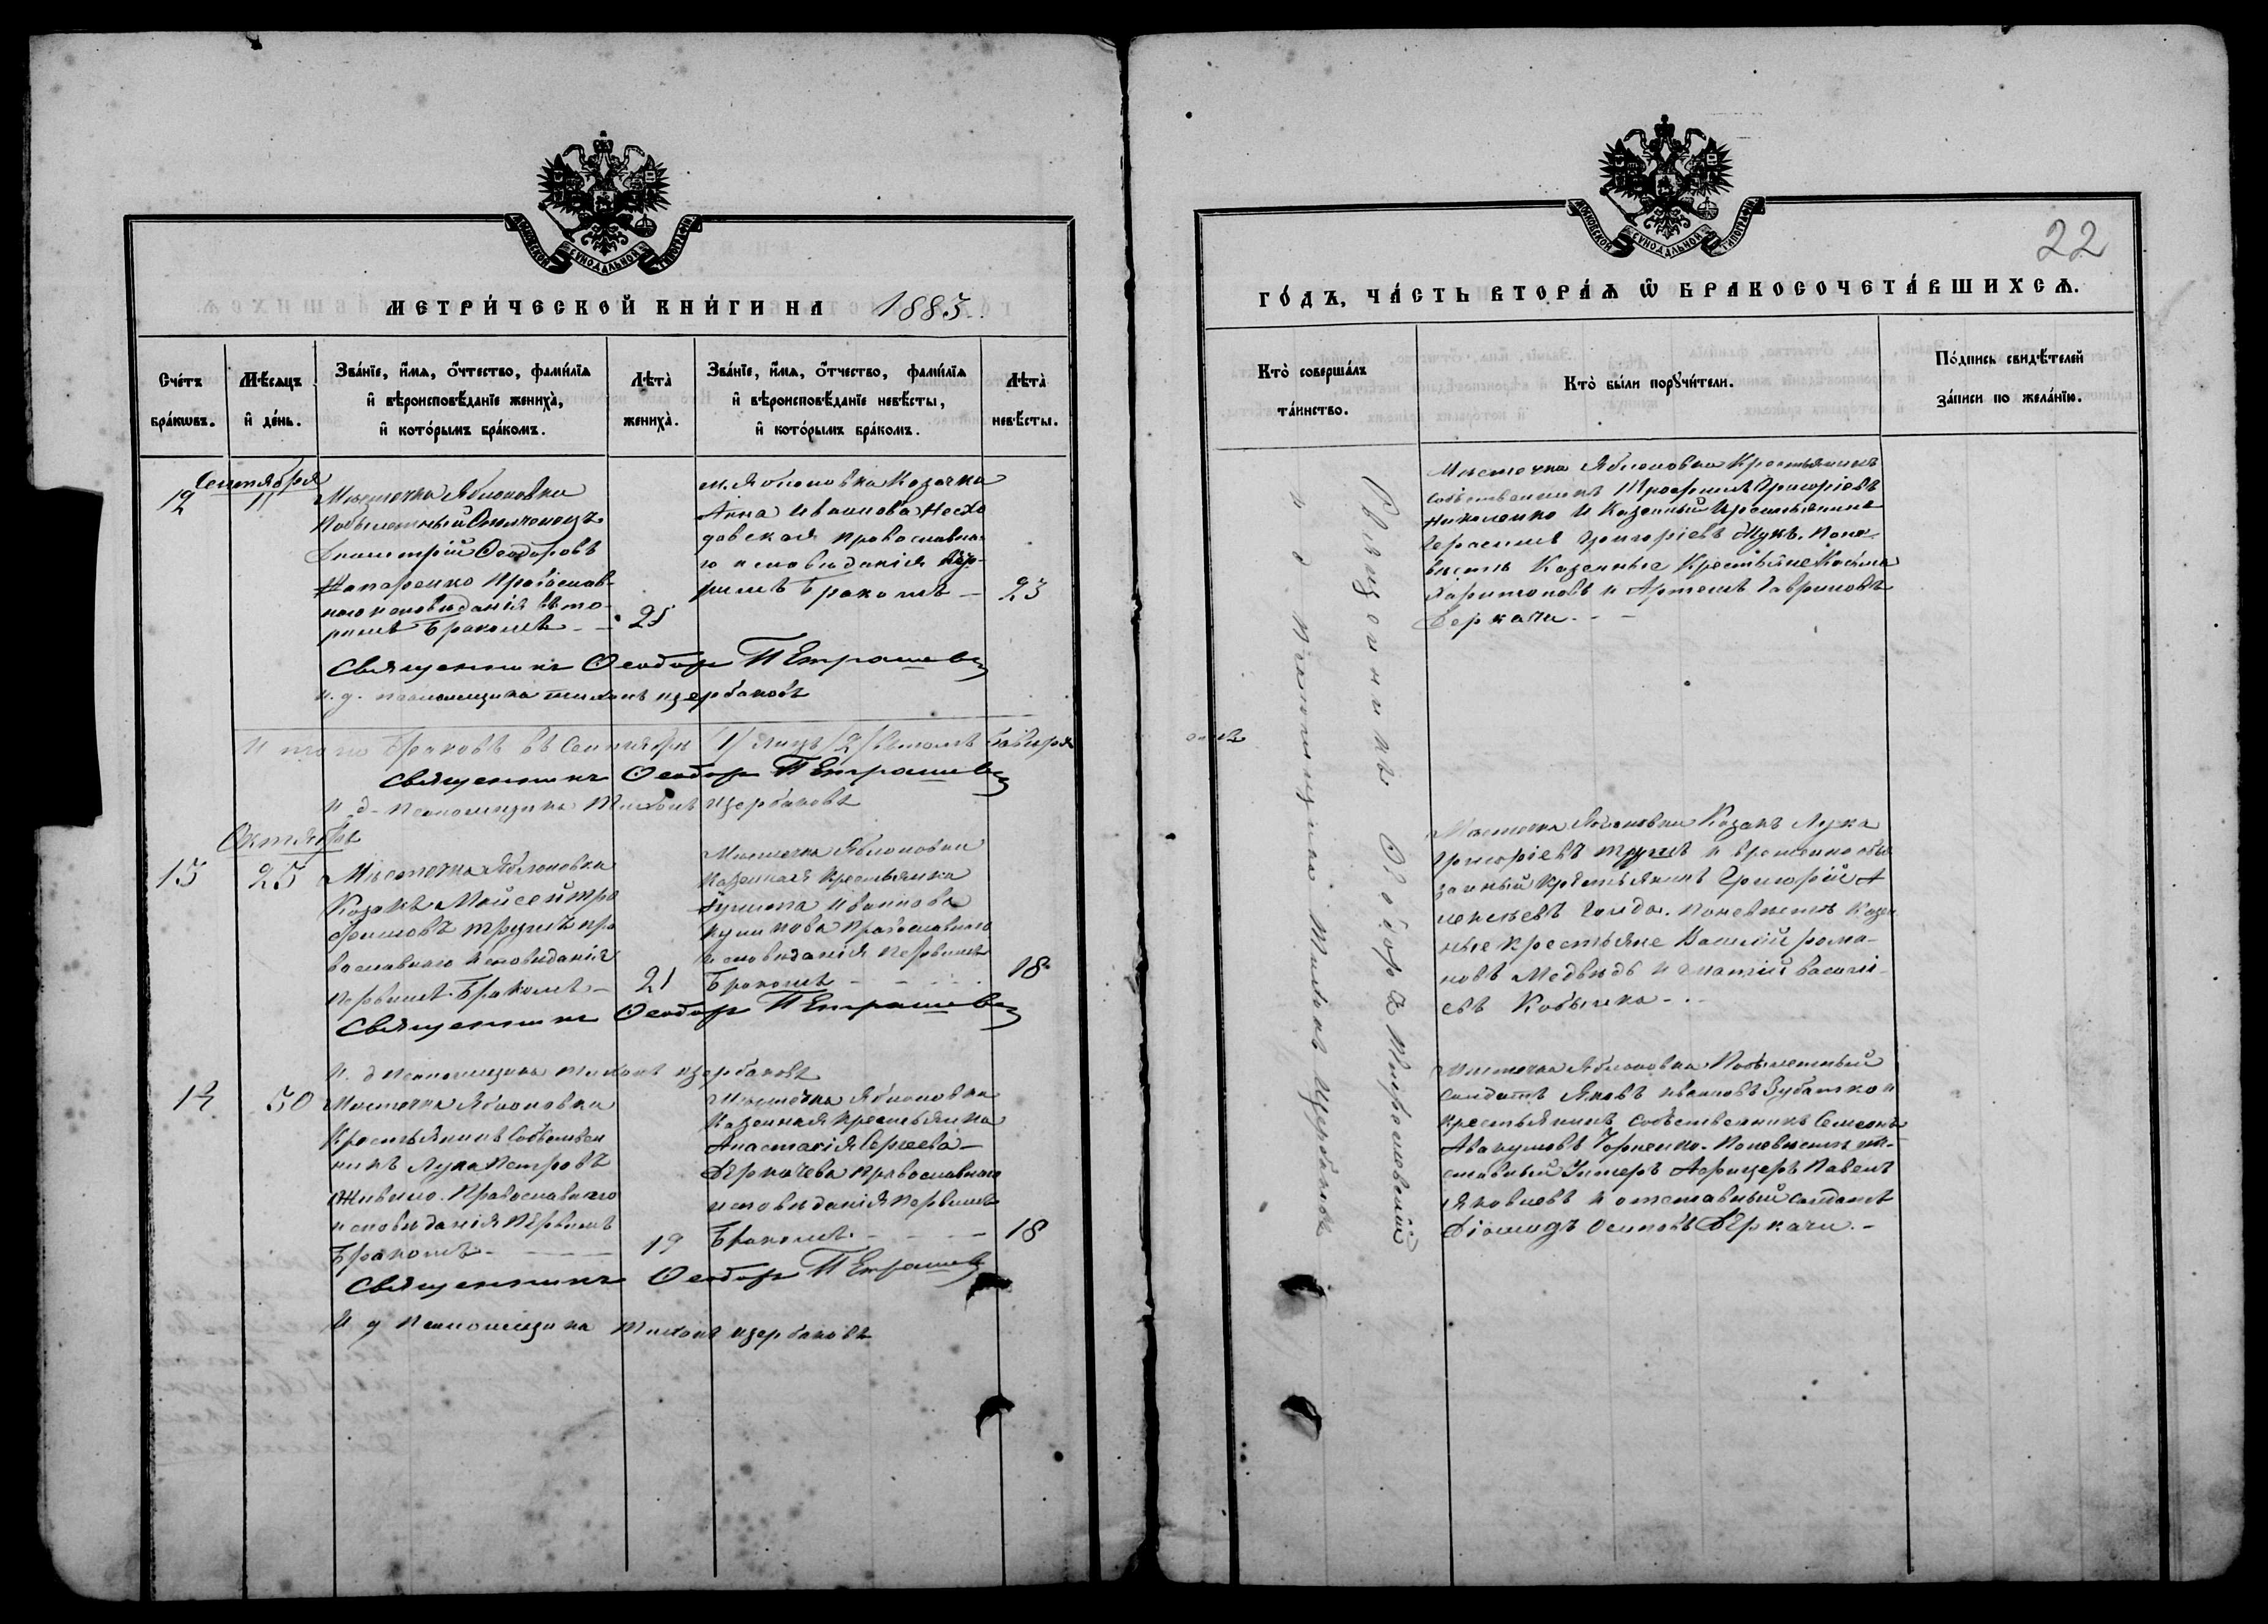 МОСКОВСКОЙ СѴНОДАЛЬНОЙ ТИПОГРАФІИ
МЕТРИ́ЧЕСКОЙ КНИ́ГИ НА 1883.
Сче́тъ бра́кѡвъ.
Мѣ́сѧцъ и҆ де́нь.
Зва́нїе, и҆́мѧ, ѻ҆́тчество, фами́лїѧ и҆ вѣроисповѣ́данїе жениха̀, и҆ кото́рымъ бра́комъ.
Лѣ́та̀ жениха̀.
Зва́нїе, и҆́мѧ, ѻ҆́тчество, фами́лїѧ и҆ вѣроисповѣ́данїе невѣ́сты, и҆ кото́рымъ бра́комъ.
Лѣ́та̀ невѣ́сты.
Сентября
12
11
Мѣстечка Яблоновки
Димитрій Ѳеодоровъ
Православ-
наго исповѣданія вто-
рымъ Бракомъ
25
м. Яблоновка Козачка
Анна Иванова Несхо
довская православна
го исповѣданія пер-
Бракомъ
23
Священникъ Ѳеодоръ
и. д. псаломщика Тихонъ Щербаковъ
Итого браковъ въ Сентябрѣ /1/ лицъ /2/
Священникъ Ѳеодоръ
И д Псаломщика Тихонъ Щербаковъ
Октябрь
13
25
Мѣстечка Яблоновки
Козакъ Мойсей Тро
фимовъ Трушъ пра
вославнаго исповѣданія
первымъ Бракомъ
21
Мѣстечка Яблоновки
казенная крестьянка
Иванова
православнаго
исповѣданія первымъ
Бракомъ
18
Священникъ Ѳеодоръ
И. д Псаломщика Тихонъ Щербаковъ
14
30
Мѣстечка Яблоновки
Крестьянинъ Собствен
никъ Лука Петровъ
Православнаго
исповѣданія первымъ
Бракомъ
19
Мѣстечка Яблоновки
Казенная крестьянка
Анастасія Сергѣева
Деркачева православнаго
исповѣданія первымъ
Бракомъ
18
Священникъ Ѳеодоръ
И д Псаломщика Тихонъ Щербаковъ
МОСКОВСКОЙ СѴНОДАЛЬНОЙ ТИПОГРАФІИ
22
ГО́ДЪ, ЧА́СТЬ ВТОРА́Ѧ Ѽ БРАКОСОЧЕТА́ВШИХСѦ.
Кто̀ соверша́лъ та́инство.
Кто̀ бы́ли порꙋчи́тели.
По́дпись свидѣ́телей за́писи по жела́нїю.
Священникъ Ѳеодоръ
и д Псаломщика Тихонъ Щербаковъ
Мѣстечка Яблоновки Крестьянинъ
собственникъ Трофимъ Григоріевъ
Николенко и Казенный Крестьянинъ
Герасимъ Григоріевъ Жукъ. Поне-
вѣстѣ Казенные Крестьяне Косьма
Харитоновъ и Артемъ Гавриловъ
Деркачи
Мѣстечка Яблоновки Козакъ Лука
Григоріевъ Трушъ и временно обя
занный крестьянинъ Григорій А
лексѣевъ Поневѣстѣ Казен
ные крестьяне Василій Рома-
новъ Медвѣдь и Игнатій Василі-
евъ Кобычка
Мѣстечка Яблоновки
Солдатъ Яковъ Ивановъ Зубатко и
крестьянинъ собственникъ Семеонъ
Авакумовъ Поневѣстѣ от-
ставный Унтеръ Афицеръ Павелъ
Яковлевъ и отставный солдатъ
Діомидъ Осиповъ Деркачи.